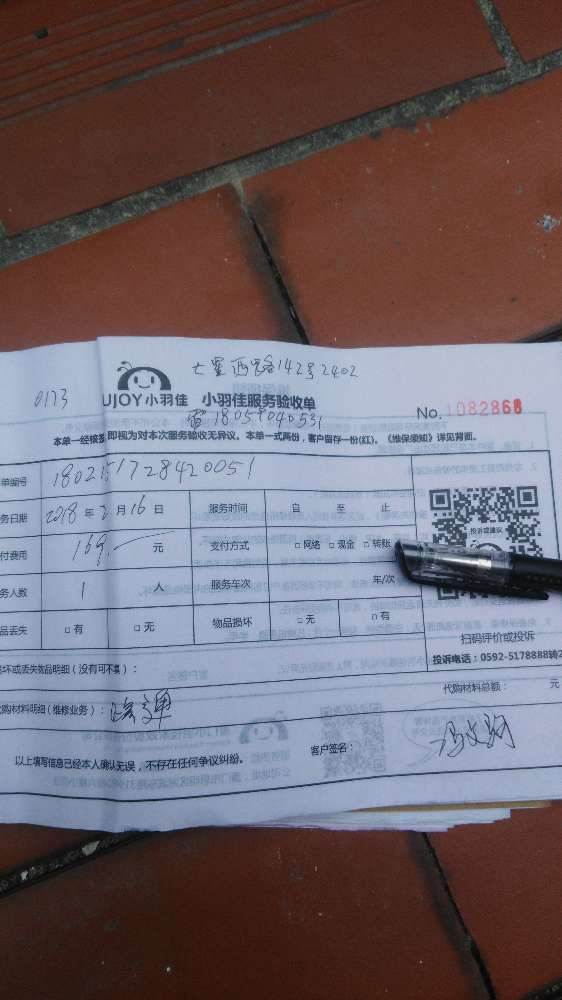 七星西路142号2402
0123
UJOY小羽佳 小羽佳服务验收单
No. 1082868
本单一经核签即视为对本次服务验收无异议。本单一式两份，客户留存一份(红)。《维保须知》详见背面。
单编号
务日期 2018年2月16日 服务时间 自 至 止
付费用 169. 元 支付方式 □网络 □现金 □转账
投诉或建议
务人数 1 人 服务车次 年/次
品丢失 □有 □无 物品损坏 □无 □有
扫码评价或投诉
投诉电话：0592-5178888转2
损坏或丢失物品明细（没有可不填）：
代购材料总额： 元
代购材料明细（维修业务）：
以上填写信息已经本人确认无误，不存在任何争议纠纷。
客户签名：